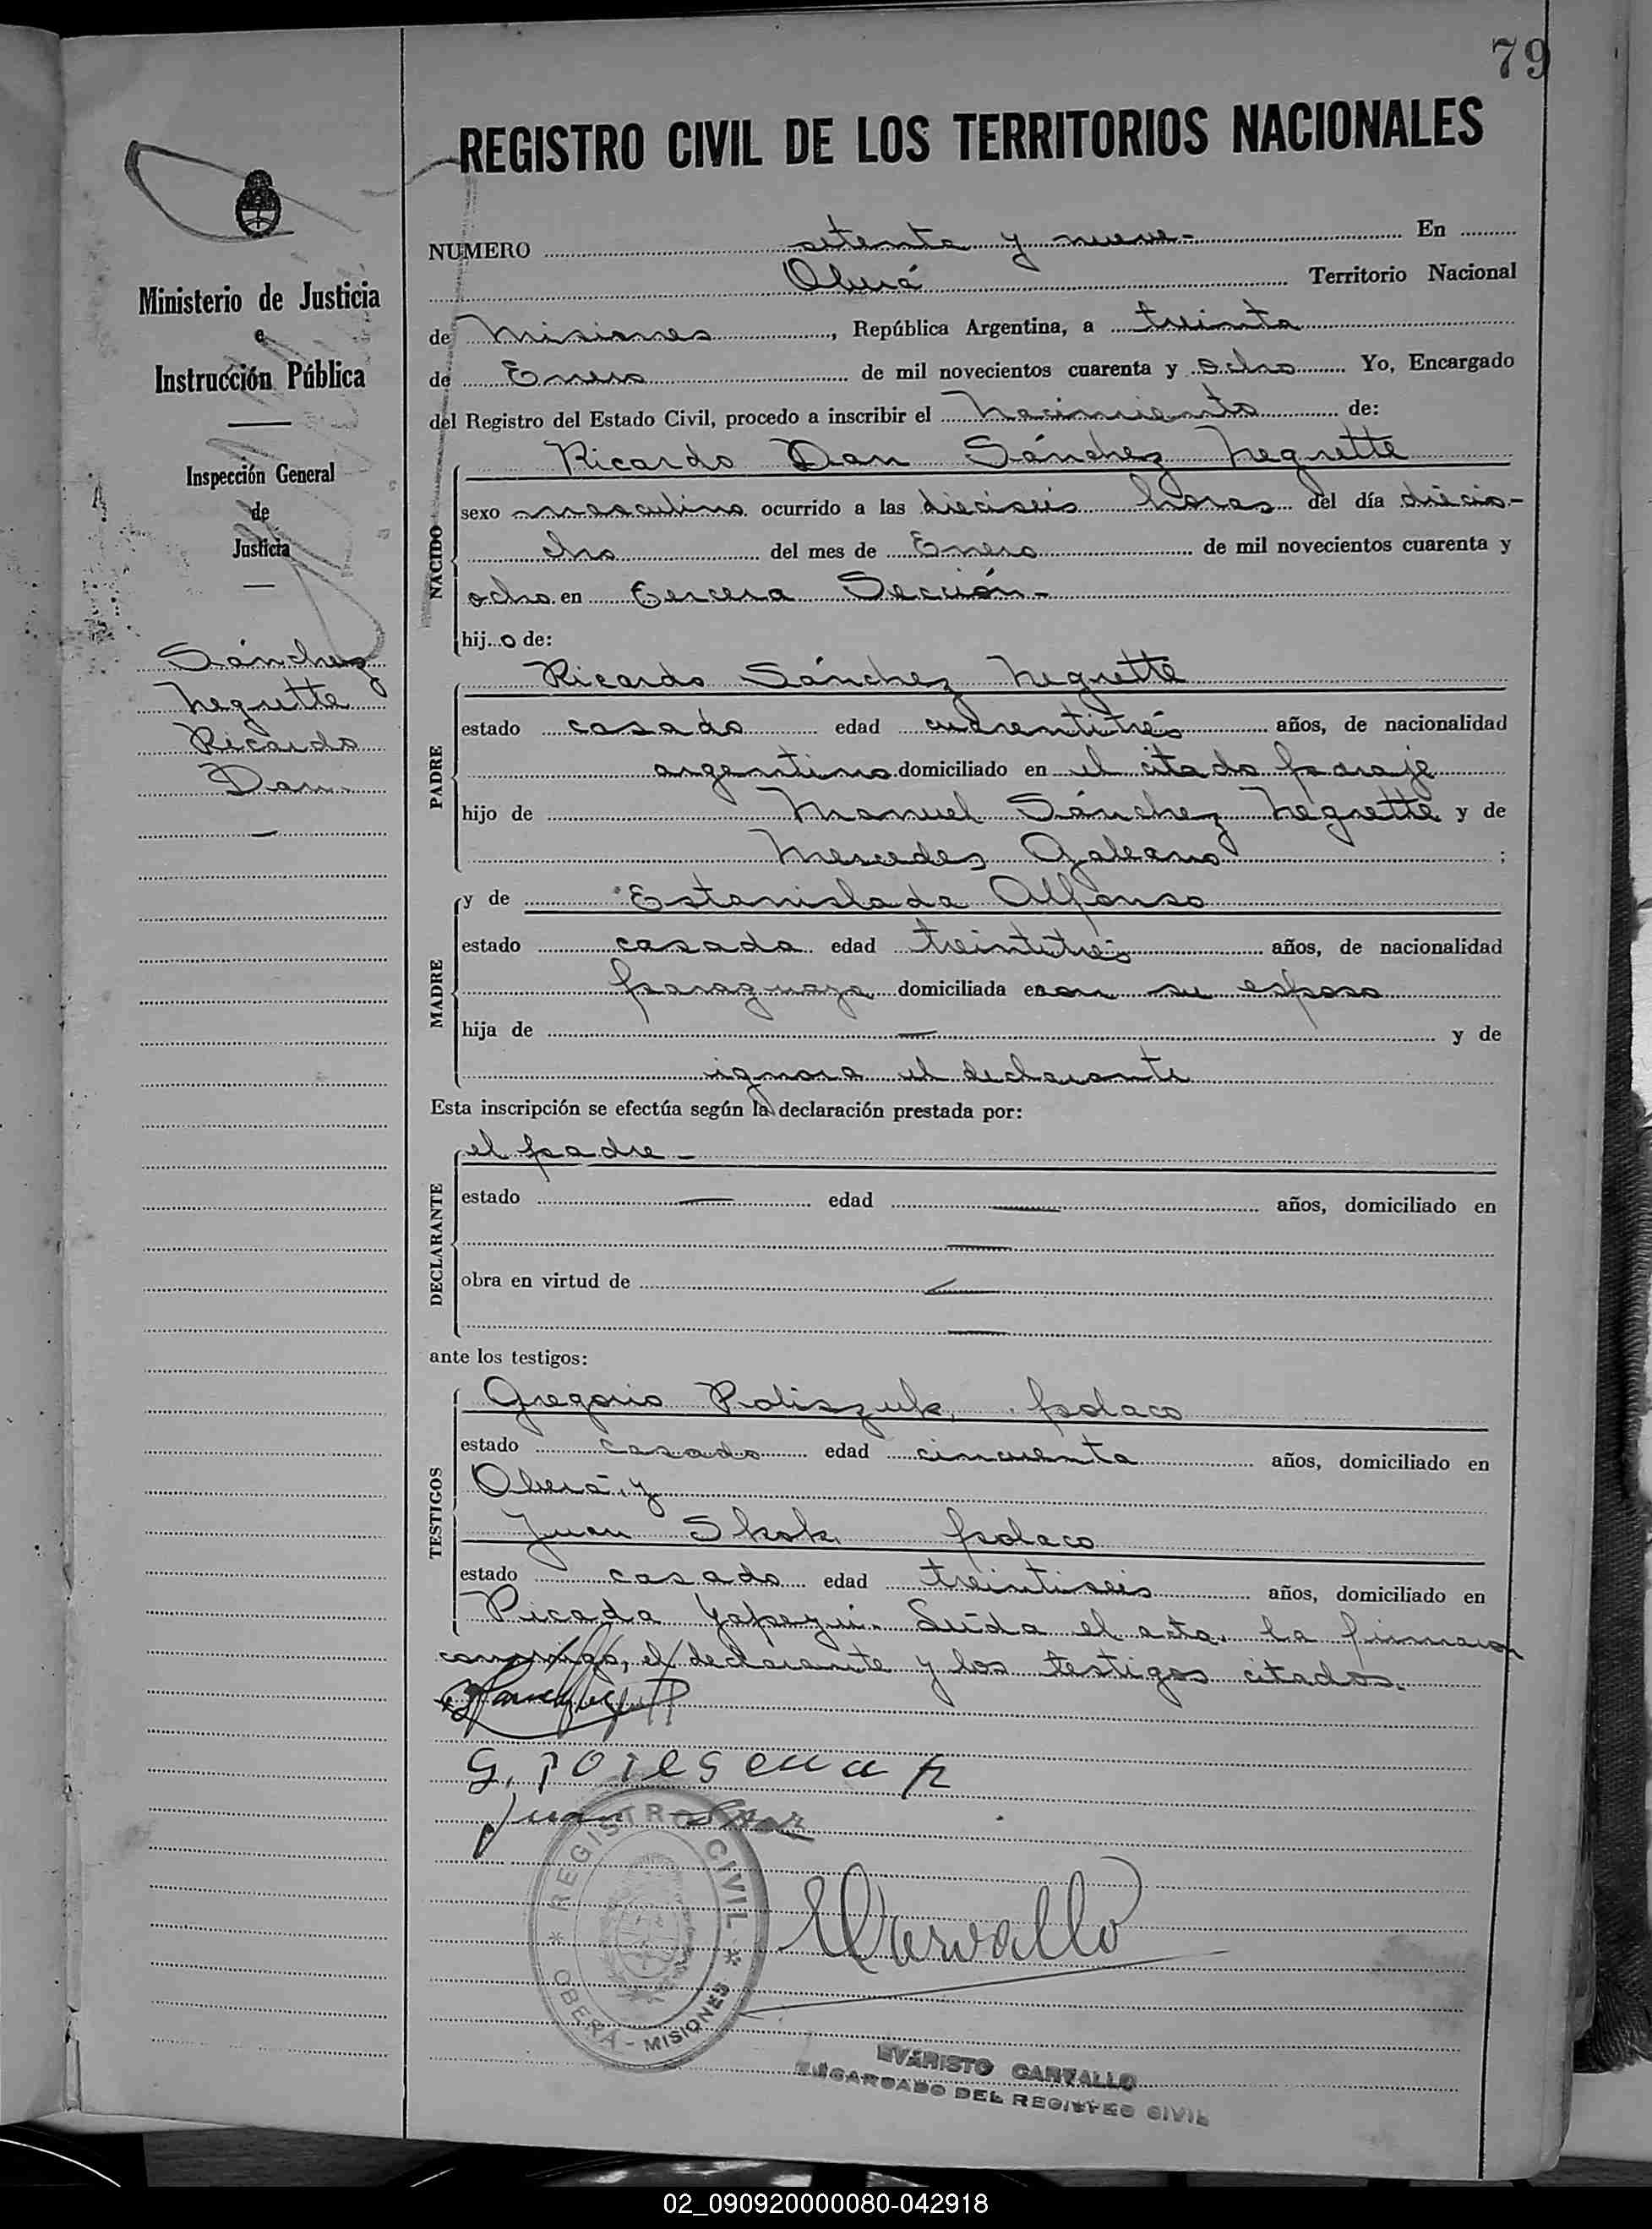 79
REGISTRO CIVIL DE LOS TERRITORIOS NACIONALES
Ministerio de Justicia
e
Instrucción Pública
Inspección General
de
Justicia
Sánchez
Negrette
Ricardo
Dan.
NUMERO setenta y nueve.- En
Oberá Territorio Nacional
de Misiones, República Argentina, a treinta
de Enero de mil novecientos cuarenta y ocho Yo, Encargado
del Registro del Estado Civil, procedo a inscribir el Nacimiento de:
NACIDO
Ricardo Dan Sánchez Negrette
sexo masculino ocurrido a las dieciseis horas del día diecio-
cho del mes de Enero de mil novecientos cuarenta y
ocho en Tercera Sección.-
hijo de:
PADRE
Ricardo Sánchez Negrette
estado casado edad cuarentitrés años, de nacionalidad
argentino domiciliado en el citado paraje
hijo de Manuel Sánchez Negrette y de
Mercedes Galeano ;
MADRE
y de Estanislada Alfonso
estado casada edad treintitrés años, de nacionalidad
paraguaya domiciliada en con su esposo
hija de — y de
ignora el declarante
Esta inscripción se efectúa según la declaración prestada por:
DECLARANTE
el padre.-
estado — edad — años, domiciliado en
—
obra en virtud de —
—
ante los testigos:
TESTIGOS
Gregorio Poliszuk, polaco
estado casado edad cincuenta años, domiciliado en
Oberá, y
Juan Skok polaco
estado casado edad treintiseis años, domiciliado en
Picada Yapeyú. Leída el acta, la firman
conmigo, el declarante y los testigos citados.
Juan Skok
REGISTRO CIVIL
OBERÁ - MISIONES
ECarvallo
EVARISTO CARVALLO
ENCARGADO DEL REGISTRO CIVIL
02_090920000080-042918